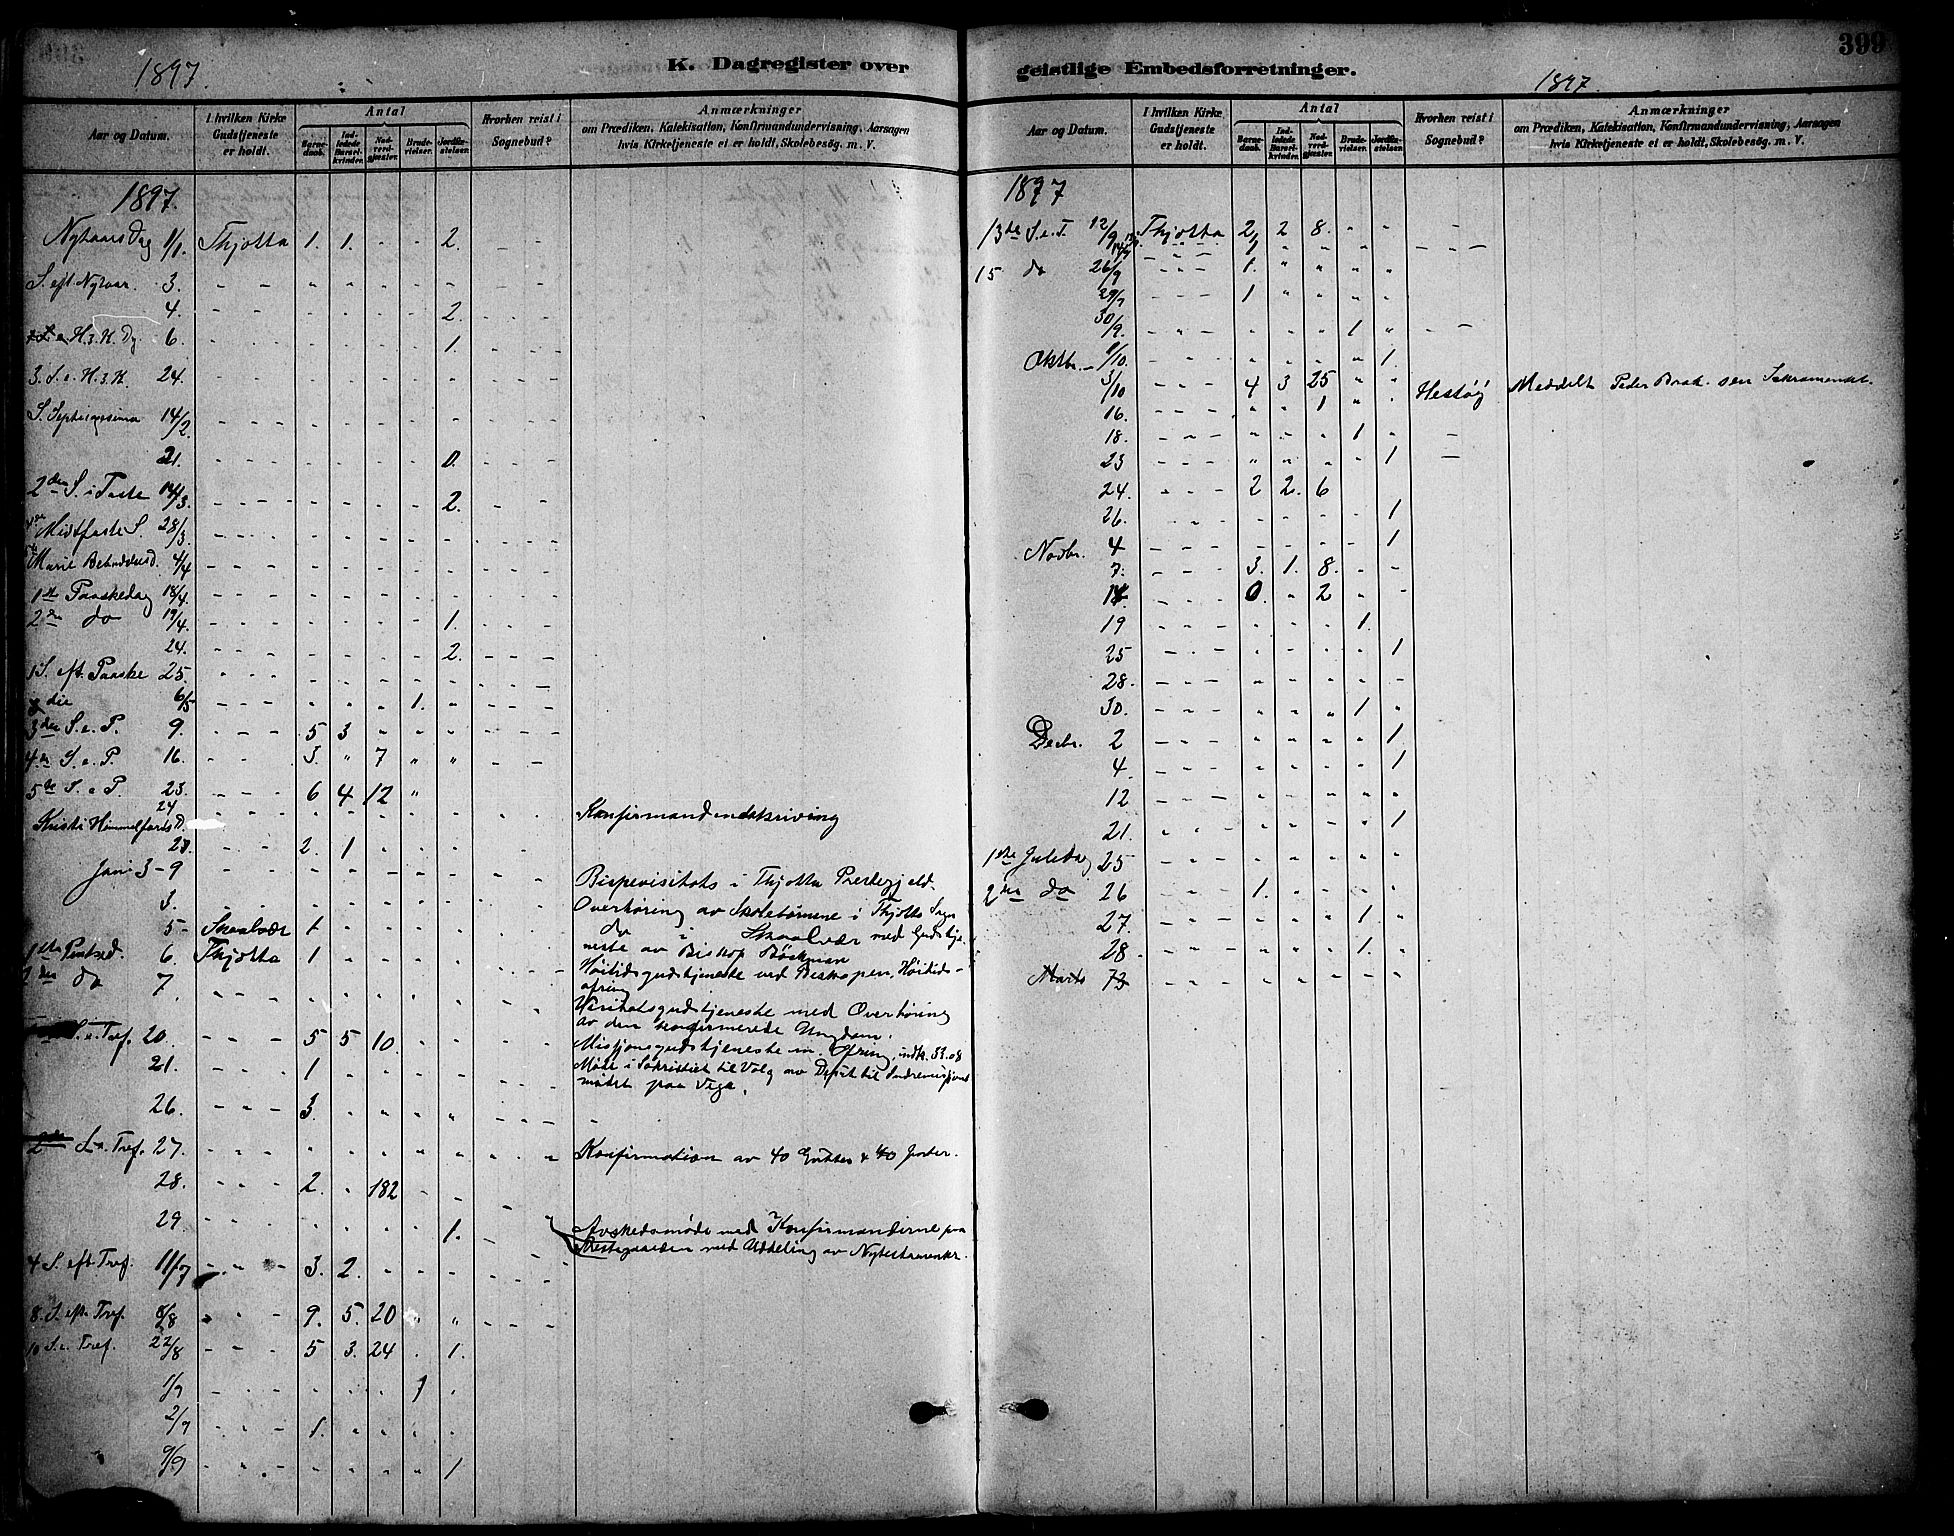 1897.
K. Dagregister over
Aar og Datum.
I hvilken Kirke Gudstjeneste er holdt.
Antal
Barnedaab.
Indledede Barselkvinder.
Nadverdgjester.
Brudevielser.
Jordfæstelser.
Hvorhen reist i Sognebud?
Anmærkninger
om Prædiken, Katekisation, Konfirmandundervisning, Aarsagen
hvis Kirketjeneste ei er holdt, Skolebesøg. m. V.
1897.
Nytaarsdag 1/1. Thjotta 1. 1. - - 2.
S. eft. Nytaar. 3.
4. 2.
S. e. H. 3. K. Dg. 6. 1.
3. S. e. H. 3. K. 24.
S. Septuagesima 14/2.
21. 0.
2den S. i Faste 14/3. 2.
Midtfaste S. 28/3.
Marie Bebudelsesd. 4/4
1ste Paaskedag 18/4.
2den do 19/4. 1.
24. 2.
1 S. eft. Paaske 25.
6/5 1.
3die S. e. P. 9. 5 3
4de S. e. P. 16. 3. " 7 " "
5te S. e P. 23. 6 4 12 "
24 Konfirmandindskrivning
Kristi Himmelfartsd.
27. 2. 1
Juni 3-9 Bispevisitats i Thjotta Prestegjeld.
3. Overhøring av Skolebørnene i Thjotta Sogn
5- Skaalvær 1 do i Skaalvær med Gudstje-
neste av Biskop Bøckman
1ste Pintsed. 6. Thjotta 1 Høitidsgudstjeneste ved Biskopen, Høitids-
ofring
2den do 7. Visitatsgudstjeneste med Overhøring
av den konfirmerede Ungdom.
S. e. Tref. 20. 5 5 10. Missionsgudstjeneste m. Ofring, indk. 53.08
21. 1 Møde i Sakristiet til Valg av Deput. til Indremissions
mødet paa Vega.
26. 3.
S. e. Tref. 27. Konfirmation av 40 Gutter & 40 Jenter.
28. 2. 182
29. 1. Avskedsmøde med Konfirmanderne paa
Prestegaarden med Uddeling av Nytestamenter.
4 S. eft. Tref. 11/7 3. 2.
8. S. eft. Tref. 8/8 9. 5. 20
10 S. e. Tref. 22/8 5 3. 24 1.
1/9 1
2/9 1.
9/9 1
geistlige Embedsforretninger.
1897.
399
Aar og Datum.
I hvilken Kirke Gudstjeneste er holdt.
Antal
Barnedaab.
Indledede Barselkvinder.
Nadverdgjester.
Brudevielser.
Jordfæstelser.
Hvorhen reist i Sognebud?
Anmærkninger
om Prædiken, Katekisation, Konfirmandundervisning, Aarsagen
hvis Kirketjeneste ei er holdt, Skolebesøg, m. V.
1897
13de S. e. T. 12/9 Thjotta 2 2 8.
15 do 26/9 1.
29/9 1
30/9. 1
Oktbr. 1/10. 1.
3/10 4 3 25
16. 1 Hestøy Meddelt Peder Sakramentet.
18. 1
23 1
24. 2 2. 6
26. 1
Novbr. 4 1
7. 3. 1. 8.
14. 0. 2
19 1.
25 1
28.
30. 1
Decbr. 2 1.
4. 1
12
21. 1
1ste Juledag 25
2den do 26 1.
27. 1.
28 1.
Marts